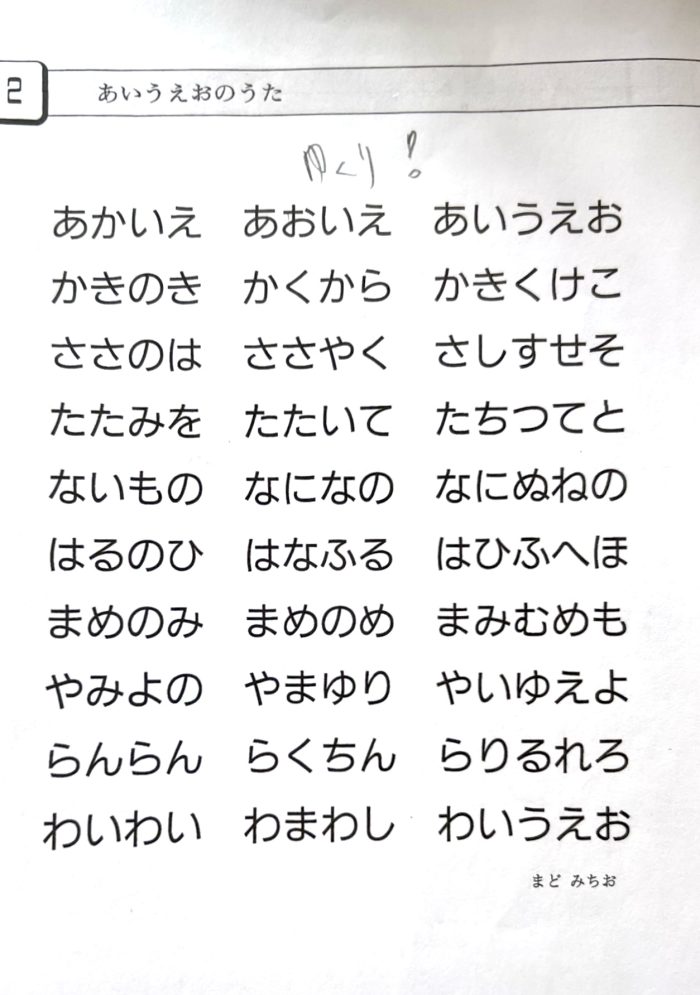 2
あいうえおのうた
ゆくり!
あかいえ あおいえ あいうえお
かきのき かくから かきくけこ
ささのは ささやく さしすせそ
たたみを たたいて たちつてと
ないもの なになの なにぬねの
はるのひ はなふる はひふへほ
まめのみ まめのめ まみむめも
やみよの やまゆり やいゆえよ
らんらん らくちん らりるれろ
わいわい わまわし わいうえお
まど みちお